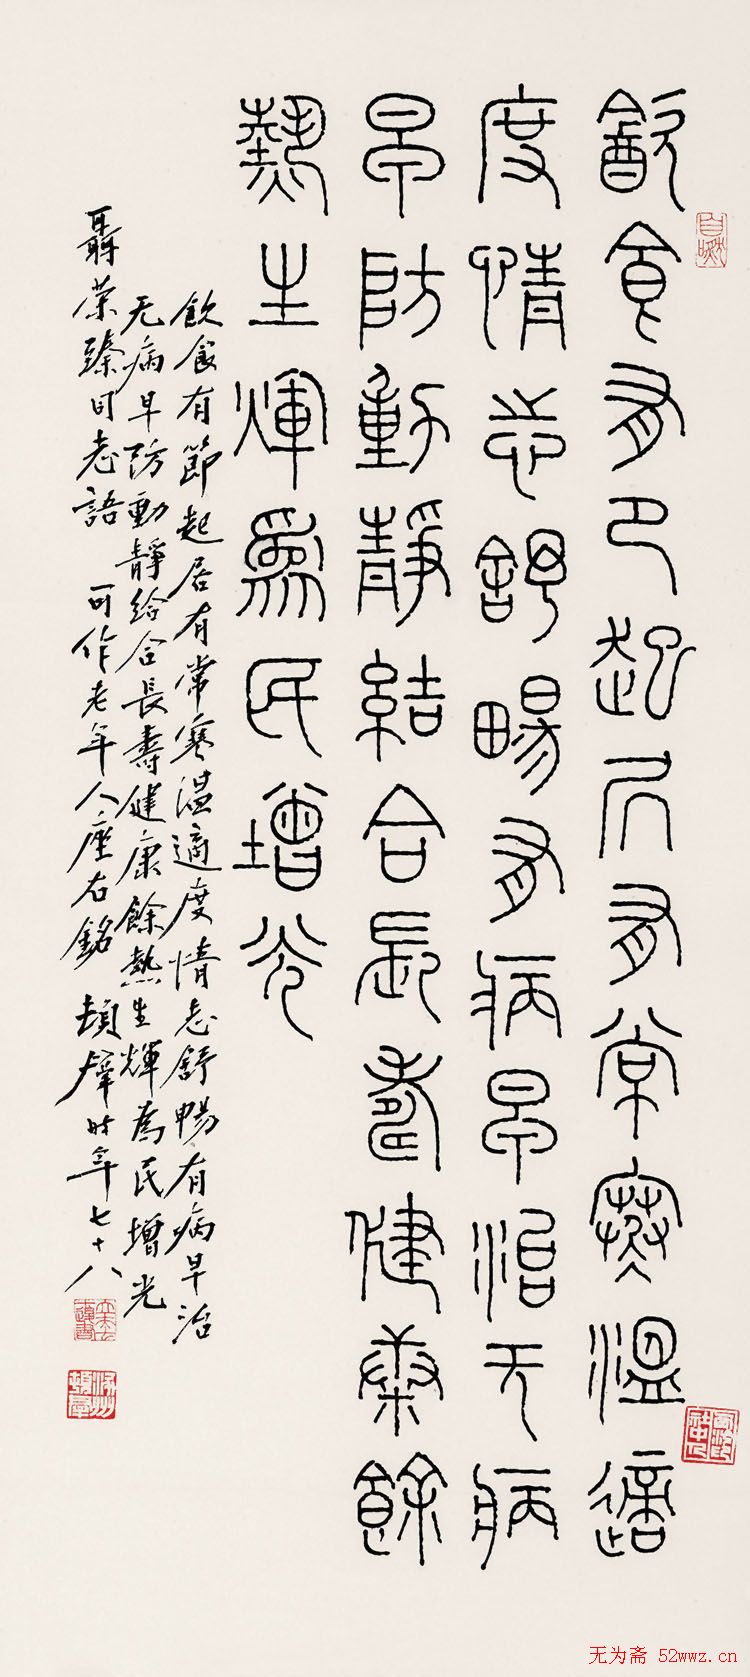 飲食有卪起凥有常寒溫適
度情志舒暢有病早治无病
早防動靜結合長壽健康餘
熱生煇為民增光
飲食有節起居有常寒温適度情志舒暢有病早治
无病早防動靜結合長壽健康餘熱生輝為民增光
聶荣臻同志語 可作老年人座右銘 頓羣時年七十八
涿州頓羣
无为斋 52wwz.cn